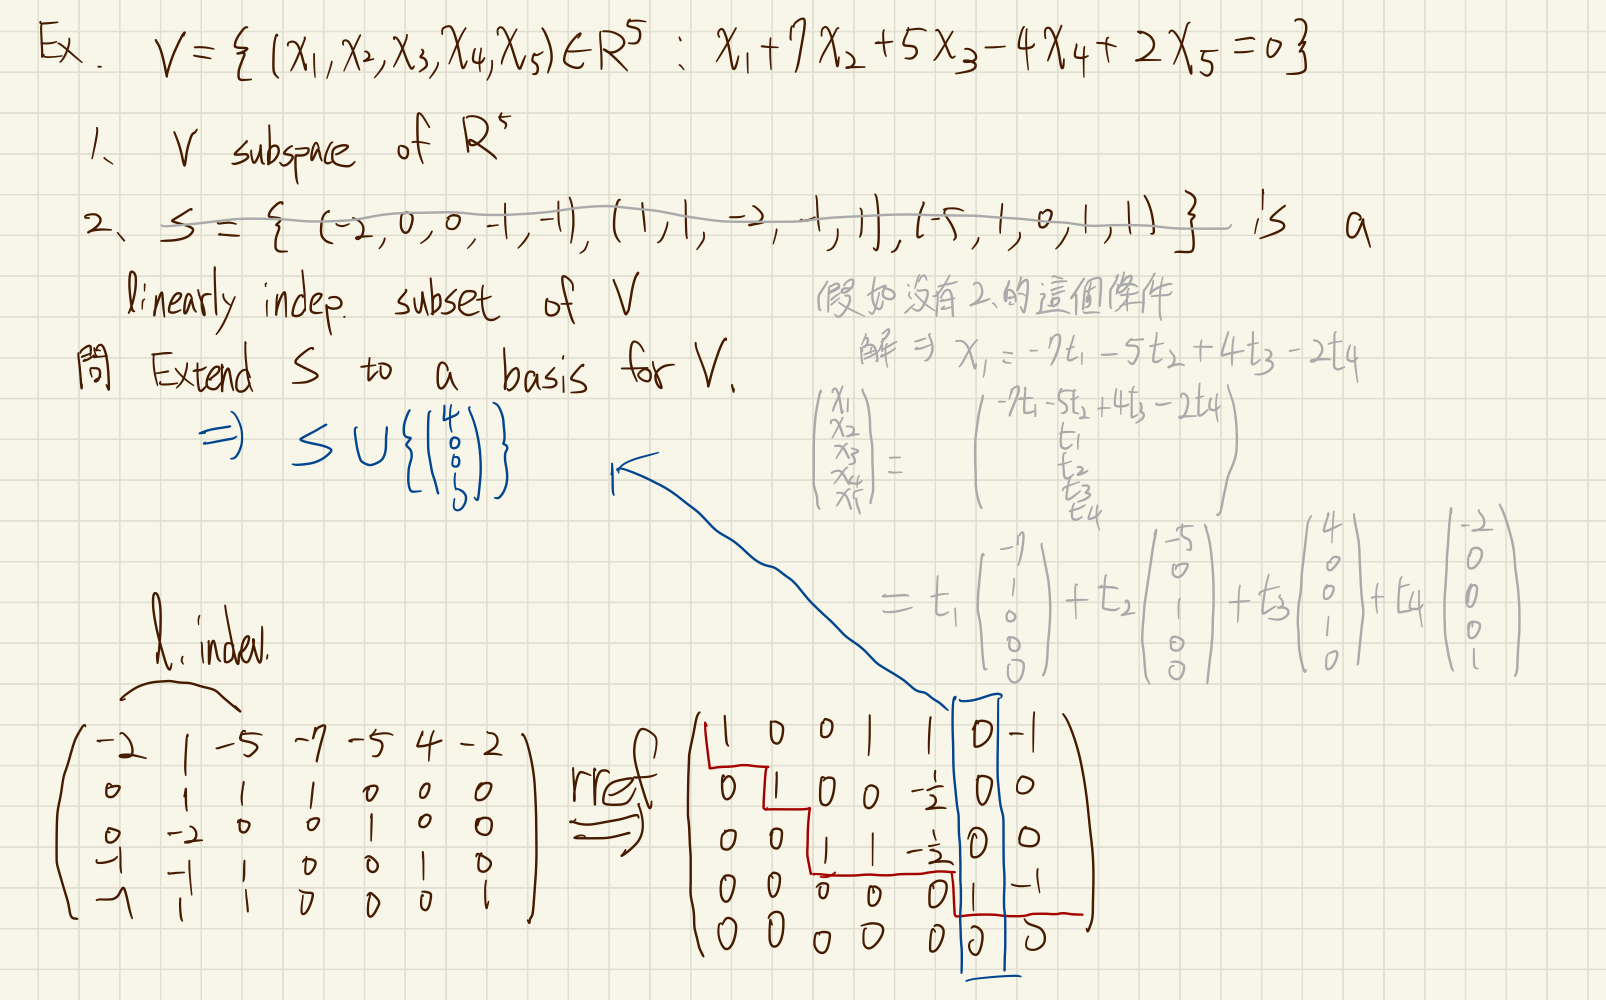 Ex. V = { (x₁, x₂, x₃, x₄, x₅) ∈ R⁵ : x₁ + 7x₂ + 5x₃ - 4x₄ + 2x₅ = 0 }
1、 V subspace of R⁵
2、 S = { (-2, 0, 0, -1, -1), (1, 1, -2, -1, 1), (-5, 1, 0, 1, 1) } is a
linearly indep. subset of V
問 Extend S to a basis for V.
⇒ S ∪ { ( 4 0 0 1 0 ) }
假如沒有 2、的這個條件
解 ⇒ x₁ = -7t₁ - 5t₂ + 4t₃ - 2t₄
( x₁ x₂ x₃ x₄ x₅ ) = ( -7t₁ - 5t₂ + 4t₃ - 2t₄ t₁ t₂ t₃ t₄ )
= t₁ ( -7 1 0 0 0 ) + t₂ ( -5 0 1 0 0 ) + t₃ ( 4 0 0 1 0 ) + t₄ ( -2 0 0 0 1 )
l. indep.
-2 1 -5 -7 -5 4 -2
0 1 1 1 0 0 0
0 -2 0 0 1 0 0
-1 -1 1 0 0 1 0
-1 1 1 0 0 0 1
rref ⇒
1 0 0 1 1 0 -1
0 1 0 0 -1/2 0 0
0 0 1 1 -1/2 0 0
0 0 0 0 0 1 -1
0 0 0 0 0 0 0